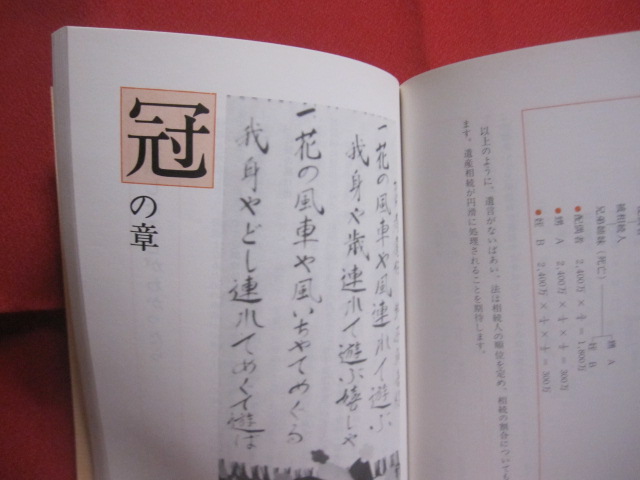 兄弟姉妹(死亡)
甥 A
姪 B
●配偶者 2,400万 × 3/4 = 1,800万
●甥 A 2,400万 × 1/4 × 1/2 = 300万
●姪 B 2,400万 × 1/4 × 1/2 = 300万
以上のように、遺言がないばあい、法は相続人の順位を定め、相続の割合についても
ます。遺産相続が円滑に処理されることを期待します。
冠の章
一 花の風車や風連れて遊ぶ
我身や歳連れて遊ぶ嬉しや
一 花の風車や風いちやてめぐる
我身やどし連れてめぐて遊ば